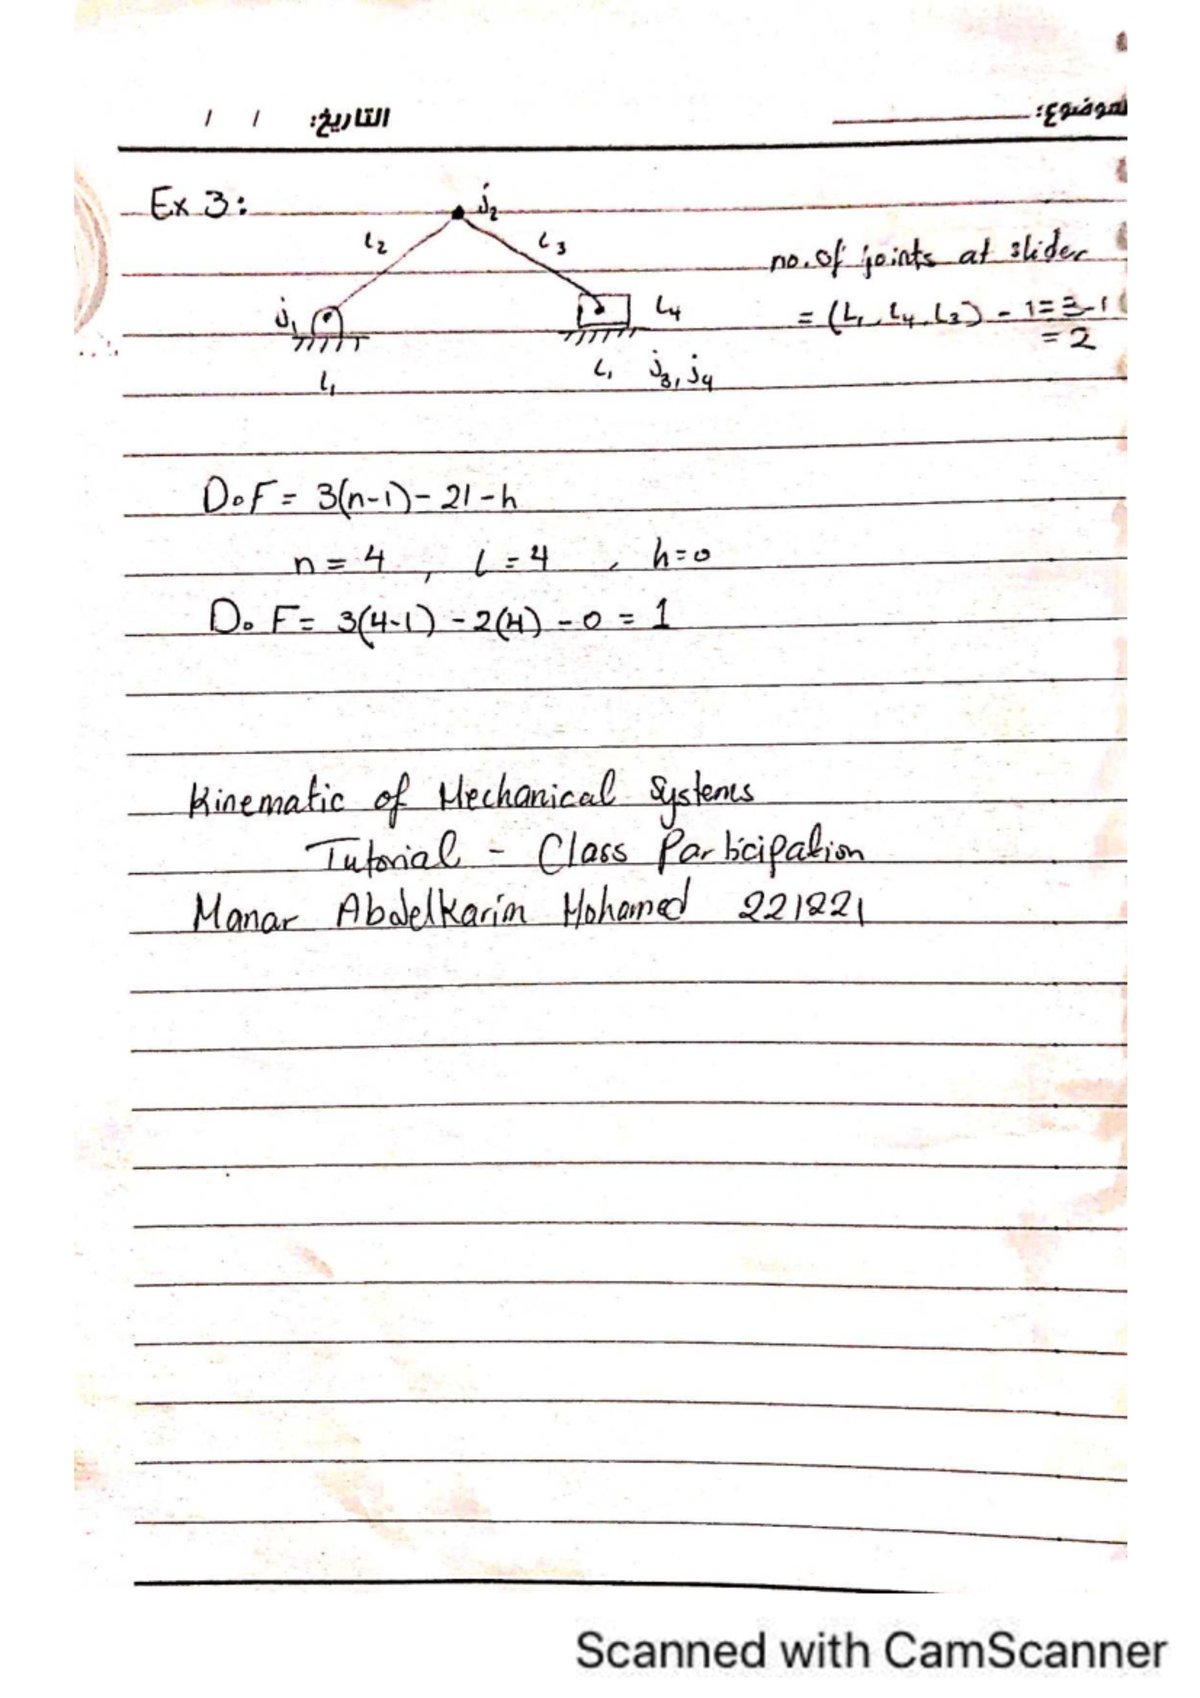 الموضوع: التاريخ: / /
Ex 3:
j₂
L₂ L₃
no. of joints at slider
j₁ L₄ = (L₁, L₄, L₃) - 1 = 3-1
= 2
L₁ L₁ j₃, j₄
DoF = 3(n-1) - 2l - h
n = 4 , l = 4 , h = 0
Do F = 3(4-1) - 2(4) - 0 = 1
Kinematic of Mechanical Systems
Tutorial - Class Participation
Manar Abdelkarim Mohamed 221221
Scanned with CamScanner